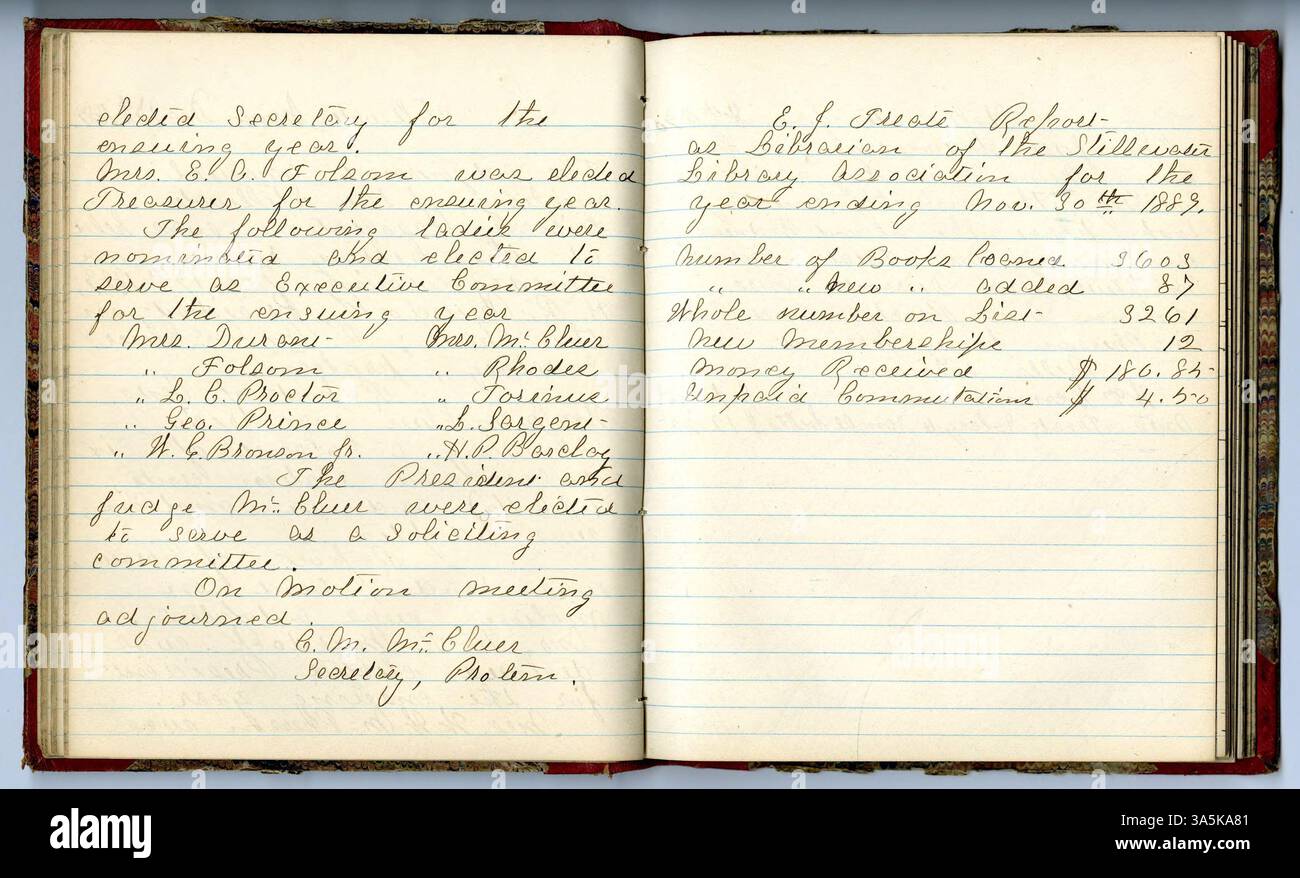 elected Secretary for the
ensuing year.
Mrs. E. A. Folsom was elected
Treasurer for the ensuing year.
The following ladies were
nominated and elected to
serve as Executive Committee
for the ensuing year
Mrs. Durant Mrs. Mc Cluer
" Folsom " Rhodes
" L. C. Proctor " Torinus
" Geo. Prince " L. Sargent
" W. C. Bronson Jr. " H. P. Barclay
The President and
Judge Mc Cluer were elected
to serve as a soliciting
committee.
On Motion meeting
adjourned.
C. M. Mc Cluer
Secretary, Protem.
E. J. Treat Report
as Librarian of the Stillwater
Library Association for the
year ending Nov. 30th 1889.
Number of Books loaned 3603
" " new " added 87
Whole number on List 3261
New Memberships 12
Money Received $ 186.85
Unpaid Commutation $ 4.50
alamy
Image ID: A35KA81
www.alamy.com